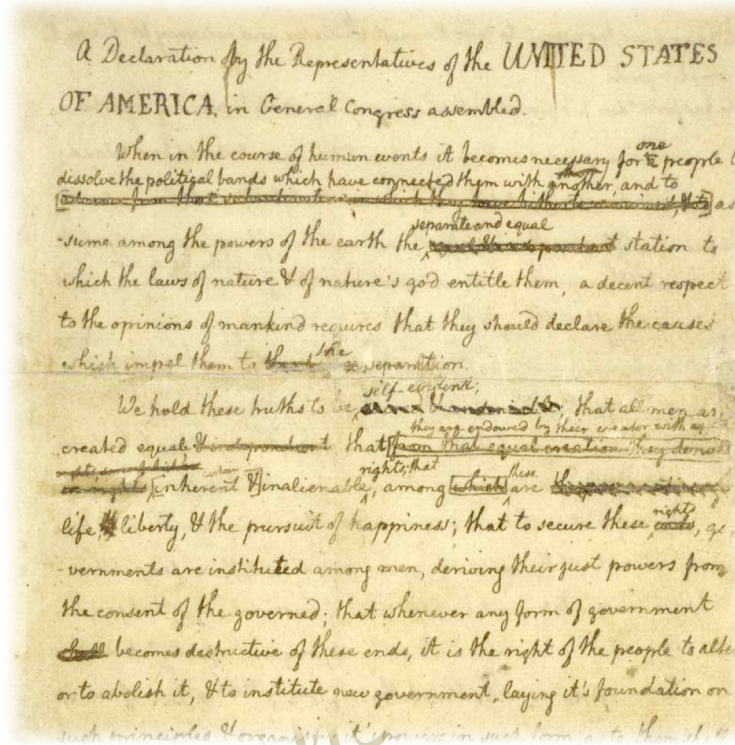 A Declaration by the Representatives of the UNITED STATES
OF AMERICA, in General Congress assembled.
When in the course of human events it becomes necessary for one people
dissolve the political bands which have connected them with another, and to
as
separate and equal
-sume among the powers of the earth the station to
which the laws of nature & of nature's god entitle them, a decent respect
to the opinions of mankind requires that they should declare the causes
the
which impel them to separation.
self-evident;
We hold these truths to be, that all men
they are endowed by their creator with
created equal & independent that from that equal creation they
rights; that
these
inherent & inalienable, among which are
life, & liberty, & the pursuit of happiness; that to secure these
rights
-vernments are instituted among men, deriving their just powers from
the consent of the governed; that whenever any form of government
shall becomes destructive of these ends, it is the right of the people to
or to abolish it, & to institute new government, laying it's foundation on
such principles & it's powers in such form